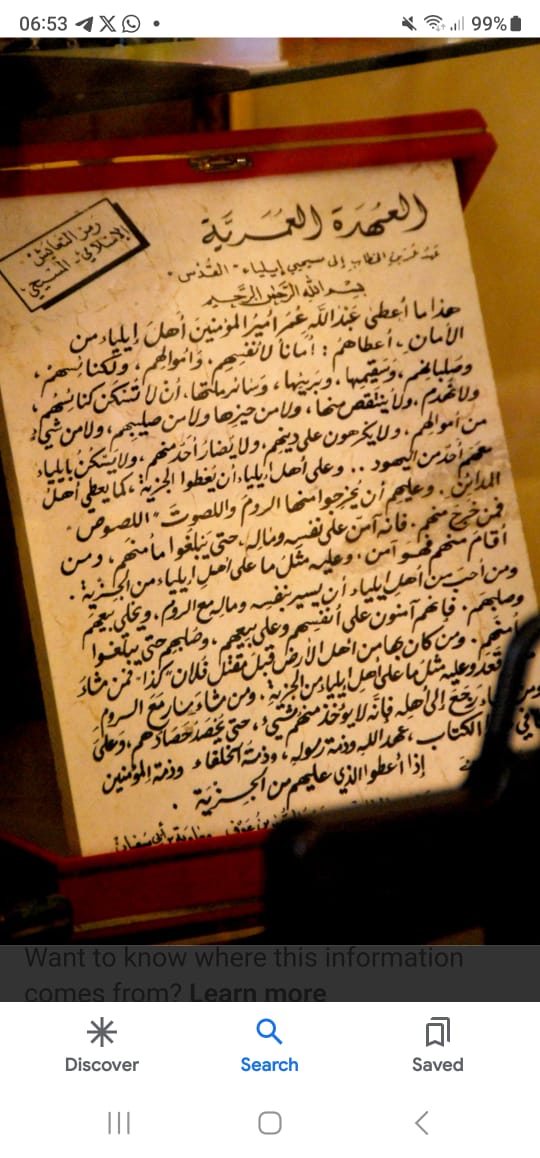 06:53
99%
العهدة العمرية
رمز التعايش
الإسلامي - المسيحي
عهد عمر بن الخطاب إلى مسيحيي إيلياء "القدس"
بسم الله الرحمن الرحيم
هذا ما أعطى عبد الله عمر أمير المؤمنين أهل إيلياء من
الأمان، أعطاهم: أماناً لأنفسهم، وأموالهم، ولكنائسهم،
وصلبانهم، وسقيمها، وبريئها، وسائر ملتها، أن لا تسكن كنائسهم،
ولا تهدم، ولا ينتقص منها، ولا من حيزها ولا من صليبهم، ولا من شيء
من أموالهم، ولا يكرهون على دينهم، ولا يضار أحد منهم، ولا يسكن بإيلياء
معهم أحد من اليهود .. وعلى أهل إيلياء أن يعطوا الجزية، كما يعطي أهل
المدائن. وعليهم أن يخرجوا منها الروم واللصوت "اللصوص"
فمن خرج منهم، فإنه آمن على نفسه وماله، حتى يبلغوا مأمنهم، ومن
أقام منهم فهو آمن، وعليه مثل ما على أهل إيلياء من الجزية.
ومن أحب من أهل إيلياء أن يسير بنفسه وماله مع الروم، ويخلي بيعهم
وصلبهم، فإنهم آمنون على أنفسهم وعلى بيعهم، وصلبهم حتى يبلغوا
مأمنهم. ومن كان بها من أهل الأرض قبل مقتل فلان "كذا" فمن شاء
قعد وعليه مثل ما على أهل إيلياء من الجزية، ومن شاء سار مع الروم
ومن شاء رجع إلى أهله فإنه لا يؤخذ منهم شيء، حتى يحصد حصادهم، وعلى
ما في الكتاب، عهد الله وذمة رسوله، وذمة الخلفاء وذمة المؤمنين
إذا أعطوا الذي عليهم من الجزية.
بن عوف، معاوية بن أبي سفيان
Want to know where this information
comes from? Learn more
Discover
Search
Saved